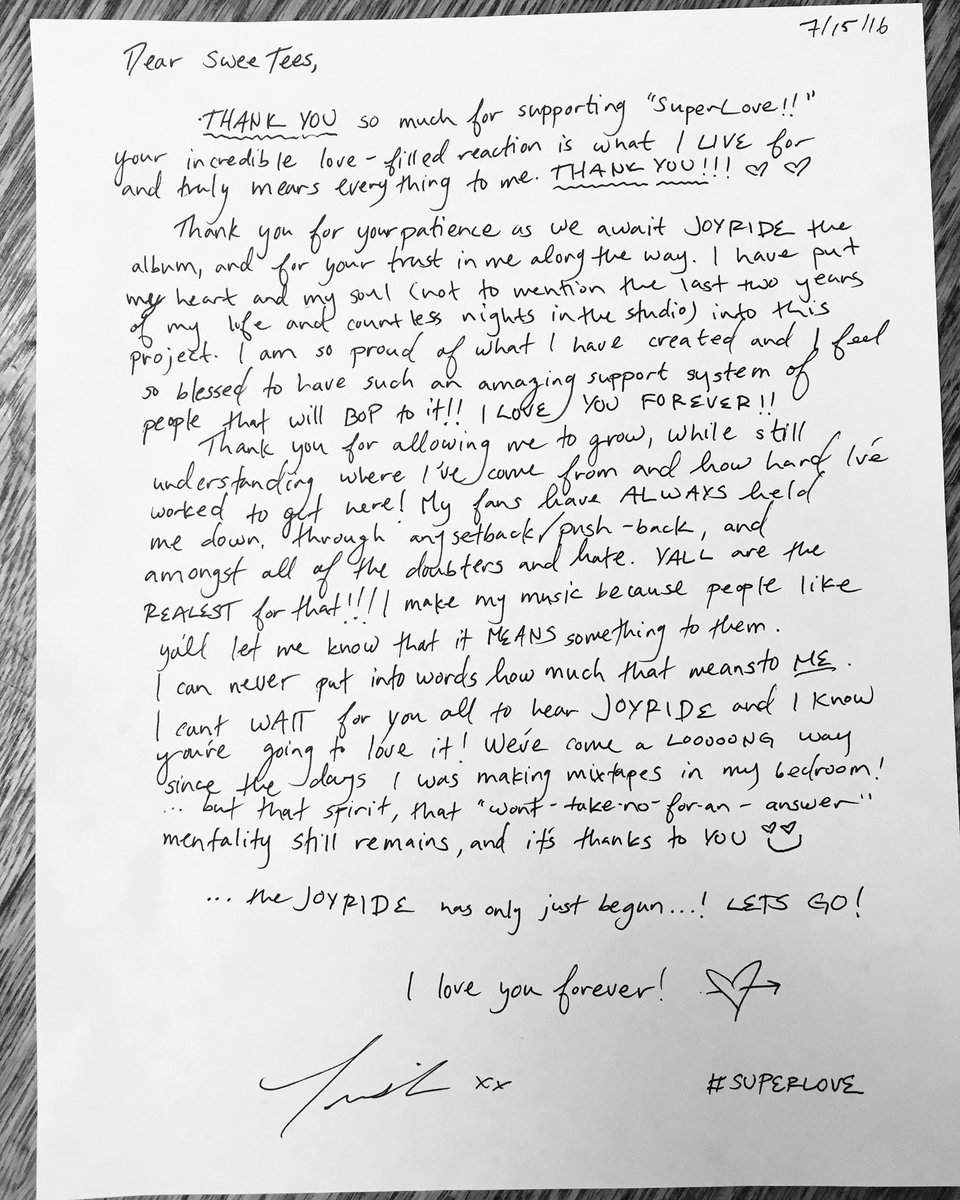 7/15/16
Dear SweeTees,
THANK YOU so much for supporting "SuperLove!!"
your incredible love-filled reaction is what I LIVE for
and truly means everything to me. THANK YOU!!! ♡ ♡
Thank you for your patience as we await JOYRIDE the
album, and for your trust in me along the way. I have put
my heart and my soul (not to mention the last two years
of my life and countless nights in the studio) into this
project. I am so proud of what I have created and I feel
so blessed to have such an amazing support system of
people that will BOP to it!! I LOVE YOU FOREVER!!
Thank you for allowing me to grow, while still
understanding where I've come from and how hard I've
worked to get here! My fans have ALWAYS held
me down, through any setback/push-back, and
amongst all of the doubters and hate. YALL are the
REALEST for that!!! I make my music because people like
y'all let me know that it MEANS something to them.
I can never put into words how much that means to ME.
I cant WAIT for you all to hear JOYRIDE and I know
you're going to love it! We've come a LOOOOONG way
since the days I was making mixtapes in my bedroom!
... but that spirit, that "wont-take-no-for-an-answer"
mentality still remains, and it's thanks to YOU
... the JOYRIDE has only just begun...! LETS GO!
I love you forever!
xx #SUPERLOVE